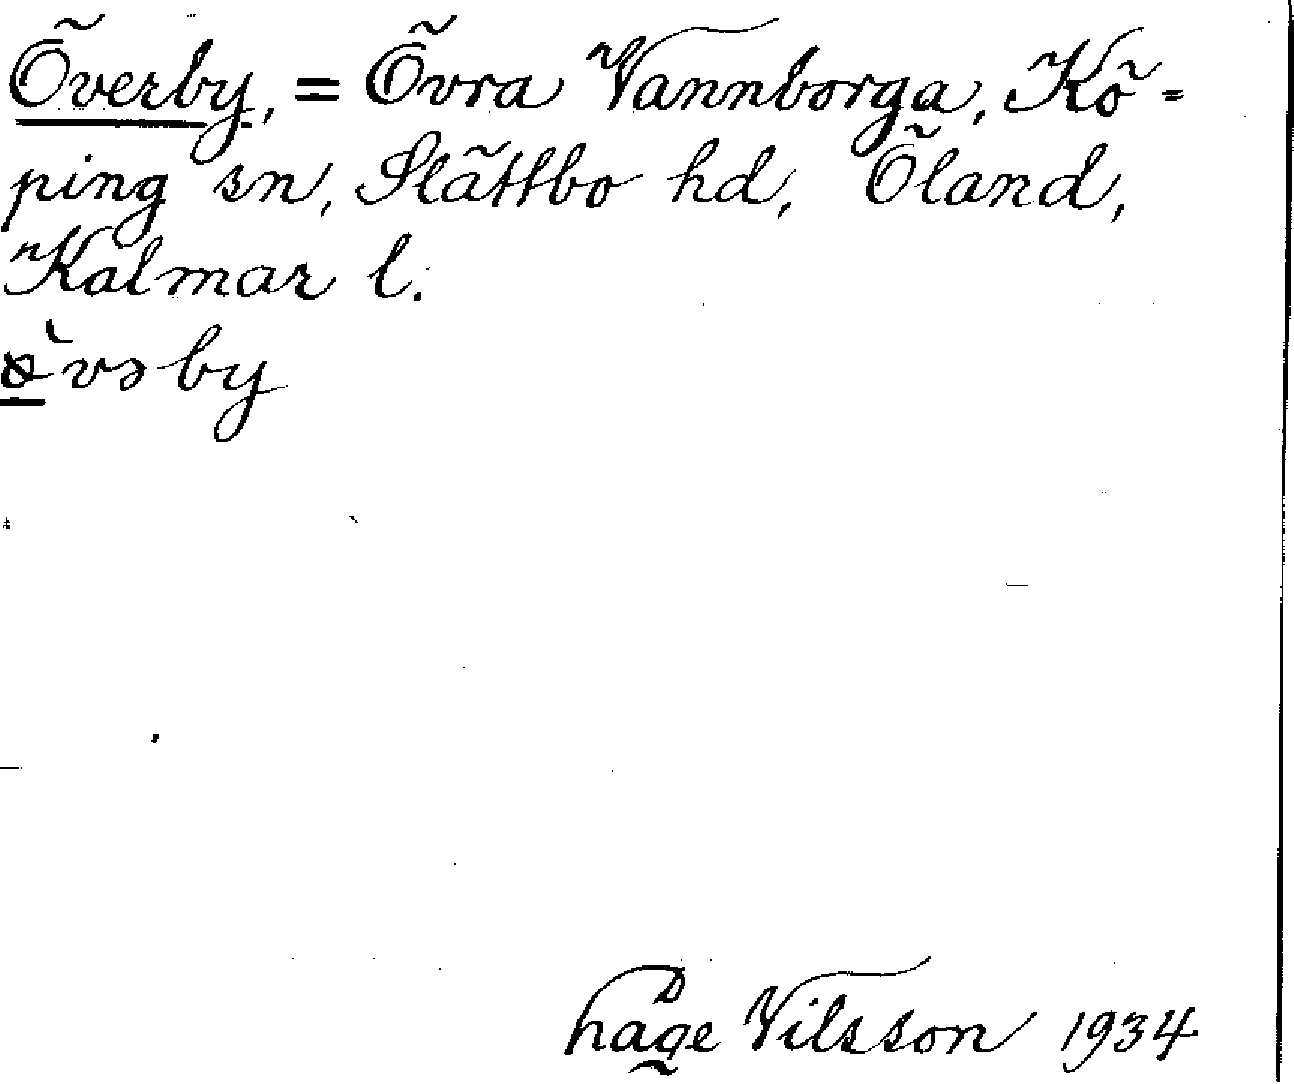 Överby, = Övra Vannborga, Kö-
ping sn, Slättbo hd, Öland,
Kalmar l.
ö̀vəby
Nilsson 1934